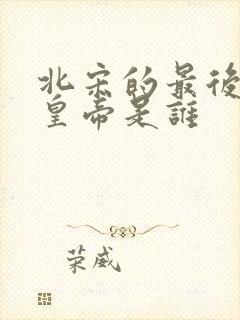 北宋的最後
皇帝是誰
荣威